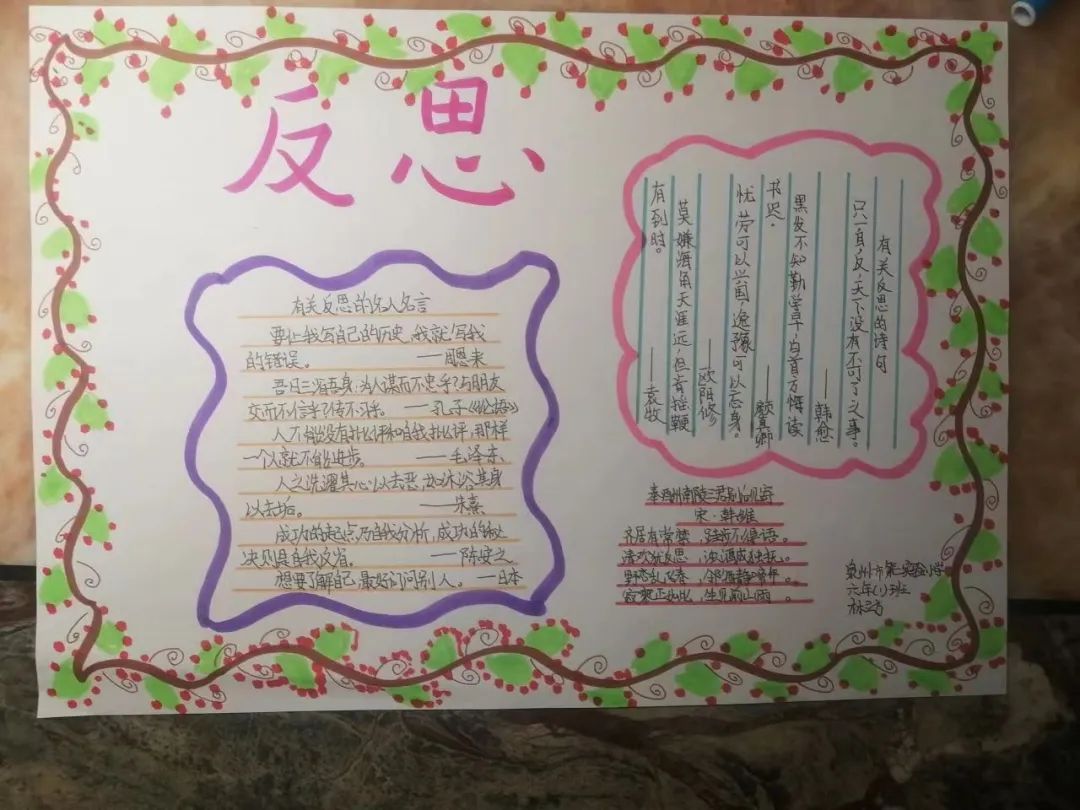 反思
有关反思的名人名言
要让我写自己的历史，我就写我
的错误。 ——周恩来
吾日三省吾身：为人谋而不忠乎？与朋友
交而不信乎？传不习乎。 ——孔子《论语》
人不能没有批评和自我批评，那样
一个人就不能进步。 ——毛泽东
人之洗濯其心以去恶，如沐浴其身
以去垢。 ——朱熹
成功的起点乃自我分析，成功的秘
决则是自我反省。 ——陈安之
想要了解自己，最好问问别人。——日本
有关反思的诗句
只一自反，天下没有不可了之事。
——韩愈
黑发不知勤学早，白首方悔读
书迟。
——颜真卿
忧劳可以兴国，逸豫可以忘身。
——欧阳修
莫嫌海角天涯远，但肯摇鞭
有到时。
——袁牧
宋·韩维
齐居有常禁，
清欢犹反思，
泉州市第一实验小学
六年(1)班